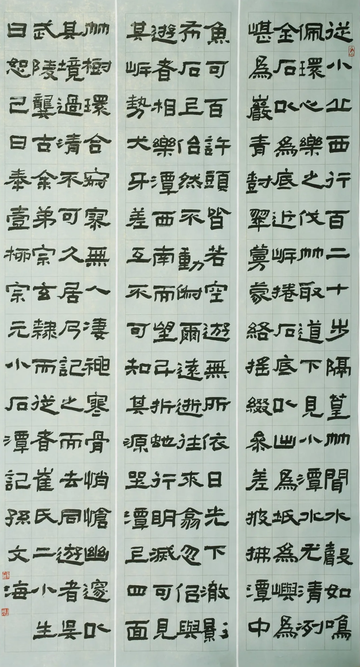 從小丘西行百二十步隔篁竹聞水聲如鳴
佩環心樂之伐竹取道下見小潭水尤清冽
全石以為底近岸捲石底以出為坻為嶼為
嵁為巖青樹翠蔓蒙絡搖綴參差披拂潭中
魚可百許頭皆若空遊無所依日光下澈影
布石上佁然不動俶爾遠逝往來翕忽似與
遊者相樂潭西南而望斗折蛇行明滅可見
其岸勢犬牙差互不可知其源坐潭上四面
竹樹環合寂寥無人淒神寒骨悄愴幽邃以
其境過清不可久居乃記之而去同遊者吳
武陵龔古余弟宗玄隸而從者崔氏二小生
曰恕己曰奉壹柳宗元小石潭記孫文海